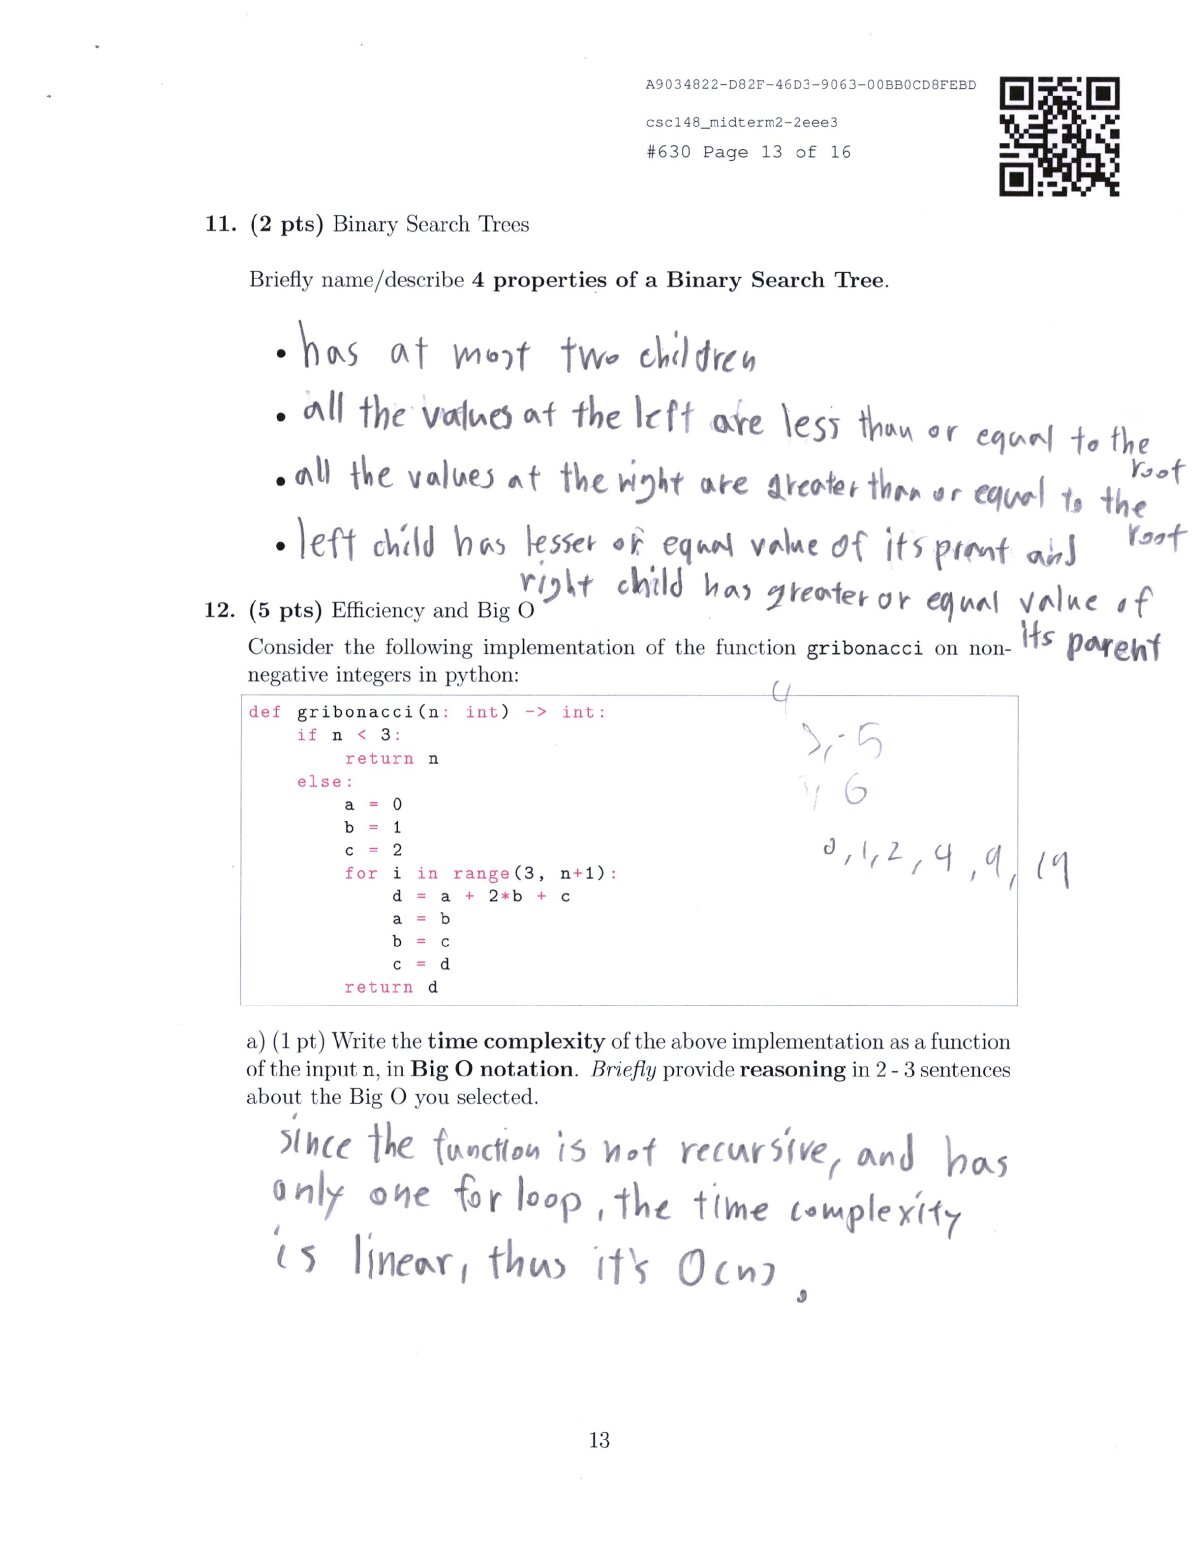 A9034822-D82F-46D3-9063-00BB0CD8FEBD
csc148_midterm2-2eee3
#630 Page 13 of 16
11. (2 pts) Binary Search Trees
Briefly name/describe 4 properties of a Binary Search Tree.
• has at most two children
• all the values at the left are less than or equal to the
root
• all the values at the right are greater than or equal to the
root
• left child has lesser or equal value of its prent and
right child has greater or equal value of
its parent
12. (5 pts) Efficiency and Big O
Consider the following implementation of the function gribonacci on non-
negative integers in python:
4
def gribonacci(n: int) -> int:
if n < 3:
5
return n
else:
6
a = 0
b = 1
c = 2
0, 1, 2, 4, 9, 19
for i in range(3, n+1):
d = a + 2*b + c
a = b
b = c
c = d
return d
a) (1 pt) Write the time complexity of the above implementation as a function
of the input n, in Big O notation. Briefly provide reasoning in 2 - 3 sentences
about the Big O you selected.
since the function is not recursive, and has
only one for loop, the time complexity
is linear, thus it's O(n).
13